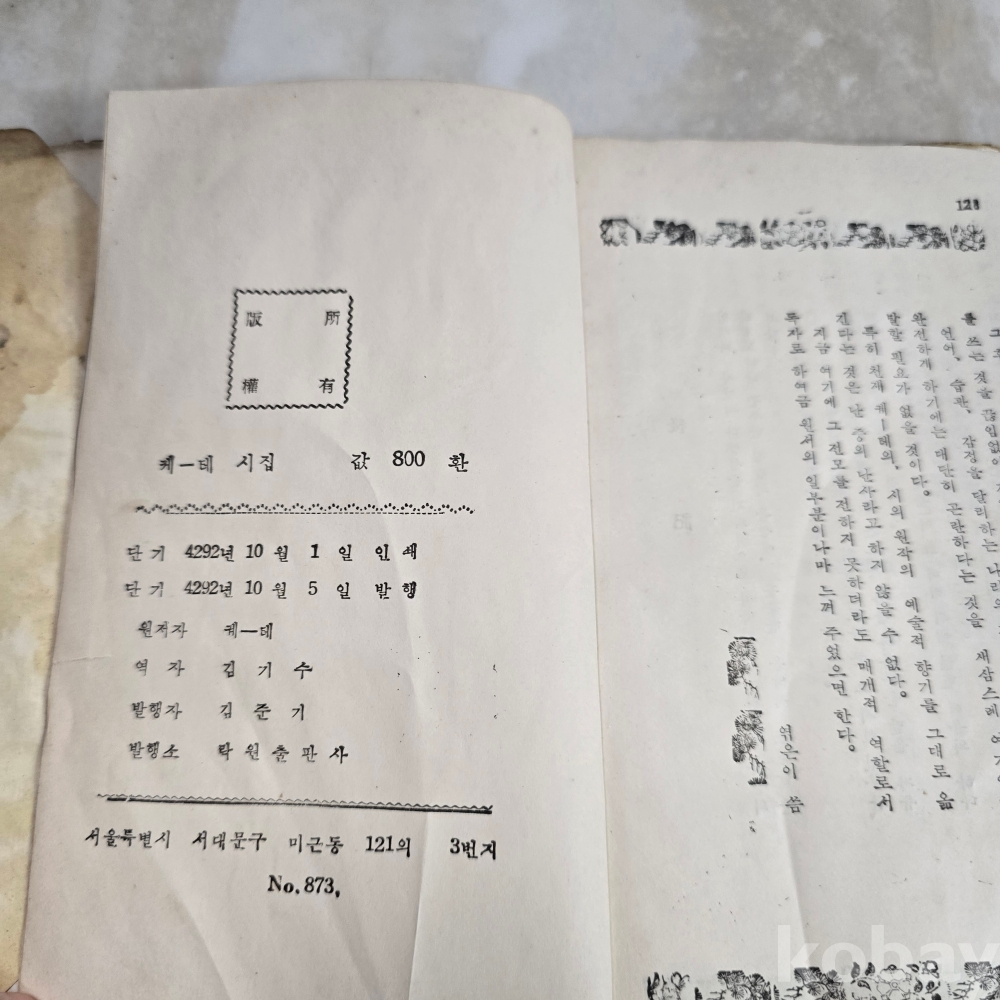 版 所
權 有
케—테 시집 값 800 환
단기 4292년 10 월 1 일 인쇄
단기 4292년 10 월 5 일 발행
원저자 케—데
역 자 김 기 수
발행자 김 준 기
발행소 락원출판사
서울특별시 서대문구 미근동 121의 3번지
No. 873,
128
를 쓰는 것을 끊임없이
언어, 습관, 감정을 달리하는 나라의
완전하게 하기에는 대단히 곤란하다는 것을 새삼스레
발할 필요가 없을 것이다.
특히 천재 케—테의, 시의 원작의 예술적 향기를 그대로 옮
긴다는 것은 난 중의 난사라고 하지 않을 수 없다.
지금 여기에 그 전모를 전하지 못하더라도 매개적 역할로서
독자로 하여금 원서의 일부분이나마 느껴 주었으면 한다.
엮은이 씀
kobay